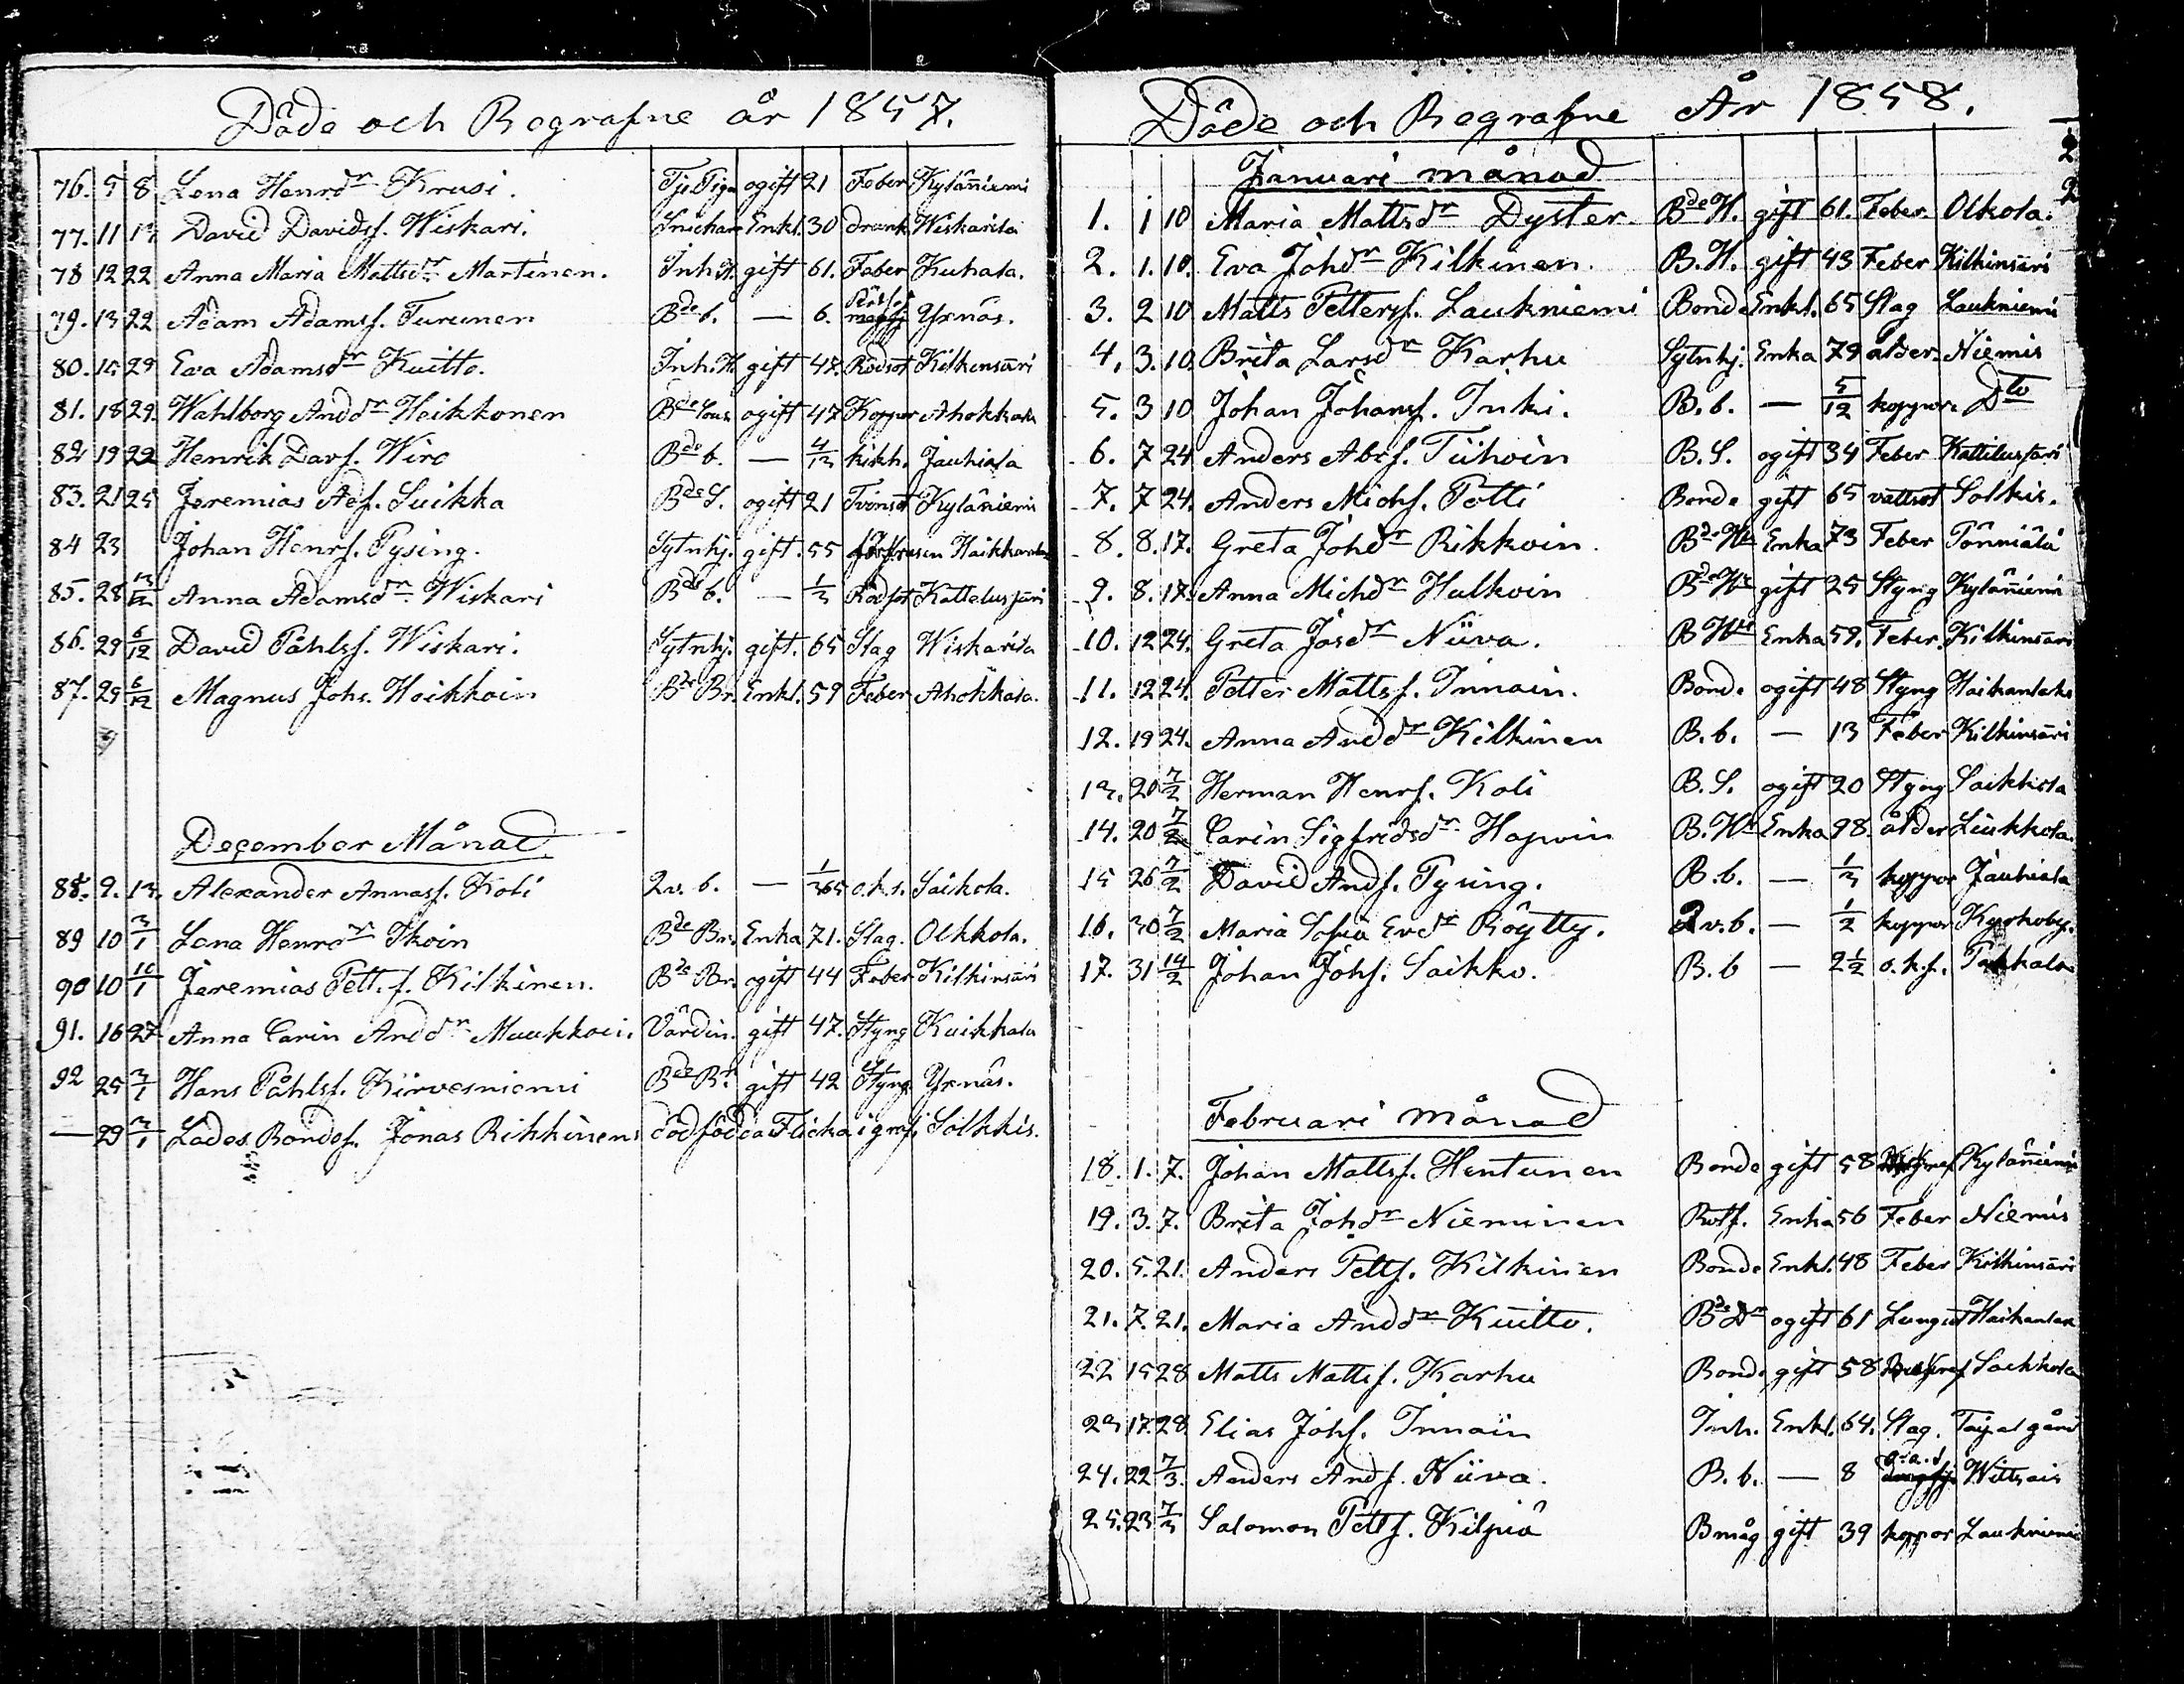 Döde och Begrafne år 1857.
76. 5 8 Lena Henrsdr Krusi. Tje.Piga ogift 21 Feber Kyläniemi
77. 11 13 David Davidsf. Wiskari. Snickare Enkl. 30 drunk. Wiskarila
78 12 22 Anna Maria Mattsdr Martinen. Inh.H. gift 61. Feber Kuhala.
79. 13 22 Adam Adamsf. Turunen Bde b. — 6. Yxnäs.
80. 15 29 Eva Adamsdr Kuitto. Inh.H. gift 47. Rödsot Kilkinsäri
81. 18 29. Wahlborg Anddr Heikkonen Bde ogift 47 Koppor Ahokkala
82 19 22 Henrik Davf. Wiro Bde b. — 4/12 kikh. Jauhiala
83. 21 25 Jeremias Adf. Suikka Bde S. ogift 21 Tvinsot Kyläniemi
84 23 Johan Henrf. Pysing. Sytnhj. gift. 55 förfrusen
85. 28 13/12 Anna Adamsdr. Wiskari Bde b. — 1/3 Rödsot Kattelussäri
86. 29 6/12 David Påhlsf. Wiskari. Sytnhj. gift. 65 Slag Wiskarila
87. 29 6/12 Magnus Johs. Hoikkoin Bde Br. Enkl. 59 Feber Ahokkala.
December Månad
88. 9. 13. Alexander Annasf. Koli Qv. b. — 1/365 o.k.s. Saikola.
89 10 3/1 Lena Henrdr Ikoin Bde Br. Enka 71. Slag. Olkkola.
90 10 10/1 Jeremias Pett.f. Kilkinen. Bde Br. ogift 44 Feber Kilkinsäri
91. 16 27 Anna Carin Anddr Muukkoin. Värdin. gift 47. Styng Kuikkala
92 25 3/1 Hans Påhlsf. Kirvesniemi Bde Br. gift 42 Styng Yxnäs.
— 29 3/1 Lades. Bondef. Jonas Rikkinens dödfödda Flicka i graf. Solkkis.
Döde och Begrafne År 1858.
Januari månad
1. 1 10 Maria Mattsdr Dyster. Bde H. gift 61. Feber. Olkola.
2. 1. 10. Eva Johdr Kilkinen. B.H. gift 43 Feber Kilkinsäri
3. 2 10 Matts Pettersf. Laukniemi Bonde Enkl. 65 Slag Laukniemi
4. 3. 10. Brita Larsdr Karhu Sytnhj. Enka 79 ålder. Niemis
5. 3 10 Johan Johansf. Inki. B.b. — 5/12 koppor. Dto
6. 7 24 Anders Abrf. Tiihoin B.S. ogift 34 Feber Kattelussäri
7. 7 24. Anders Michf. Potti Bonde gift 65 vattsot Solkis.
8. 8. 17. Greta Johdr Rikkoin. Bde We Enka 73 Feber Pönniälä
9. 8. 17. Anna Michdr Hulkoin Bde We gift 25 Styng Kyläniemi
10. 12 24. Greta Josdr Niiva. B We Enka 59. Feber. Kilkinsäri
11. 12 24. Petter Mattsf. Innain. Bonde ogift 48 Styng Haikanlaks
12. 19 24. Anna Anddr Kilkinen B.b. — 13 Feber Kilkinsäri
13. 20 7/2 Herman Henrf. Koli B.S. ogift 20 Styng Saikkola
14. 20 7/2 Carin Sigfridsdr. Hajvoin B.We Enka 98. ålder Liukkola.
15 26 7/2 David Andf. Pysing. B.b. — 1/3 koppor Jauhiala
16. 30 7/2 Maria Sofia Evdr Röytty. Qv.b. — 1/2 koppor Kyrkoby.
17. 31 14/2 Johan Johf. Saikko. B.b — 2 1/2 o.k.s. Pakkala
Februari månad
18. 1. 7. Johan Mattsf. Hentunen Bonde gift 58 Kyläniemi
19. 3. 7. Brita Johdr Nieminen Rotf. Enka 56 Feber Niemis
20. 5. 21. Anders Pettf. Kilkinen Bonde Enkl. 48 Feber Kilkinsäri
21. 7. 21. Maria Anddr Kuitto. Bde Dr ogift 61 Lungsot Haikanlax
22 15 28 Matts Mattsf. Karhu Bonde gift 58 Saikkola
23 17. 28 Elias Johf. Innain Inh. Enkl. 64. Slag. Taipalgård
24. 22 7/3. Anders Andf. Niiva. B.b. — 8 Wittsais
25. 23 7/3 Salomon Pettf. Kilpiä Bmåg gift 39 koppor Laukniemi